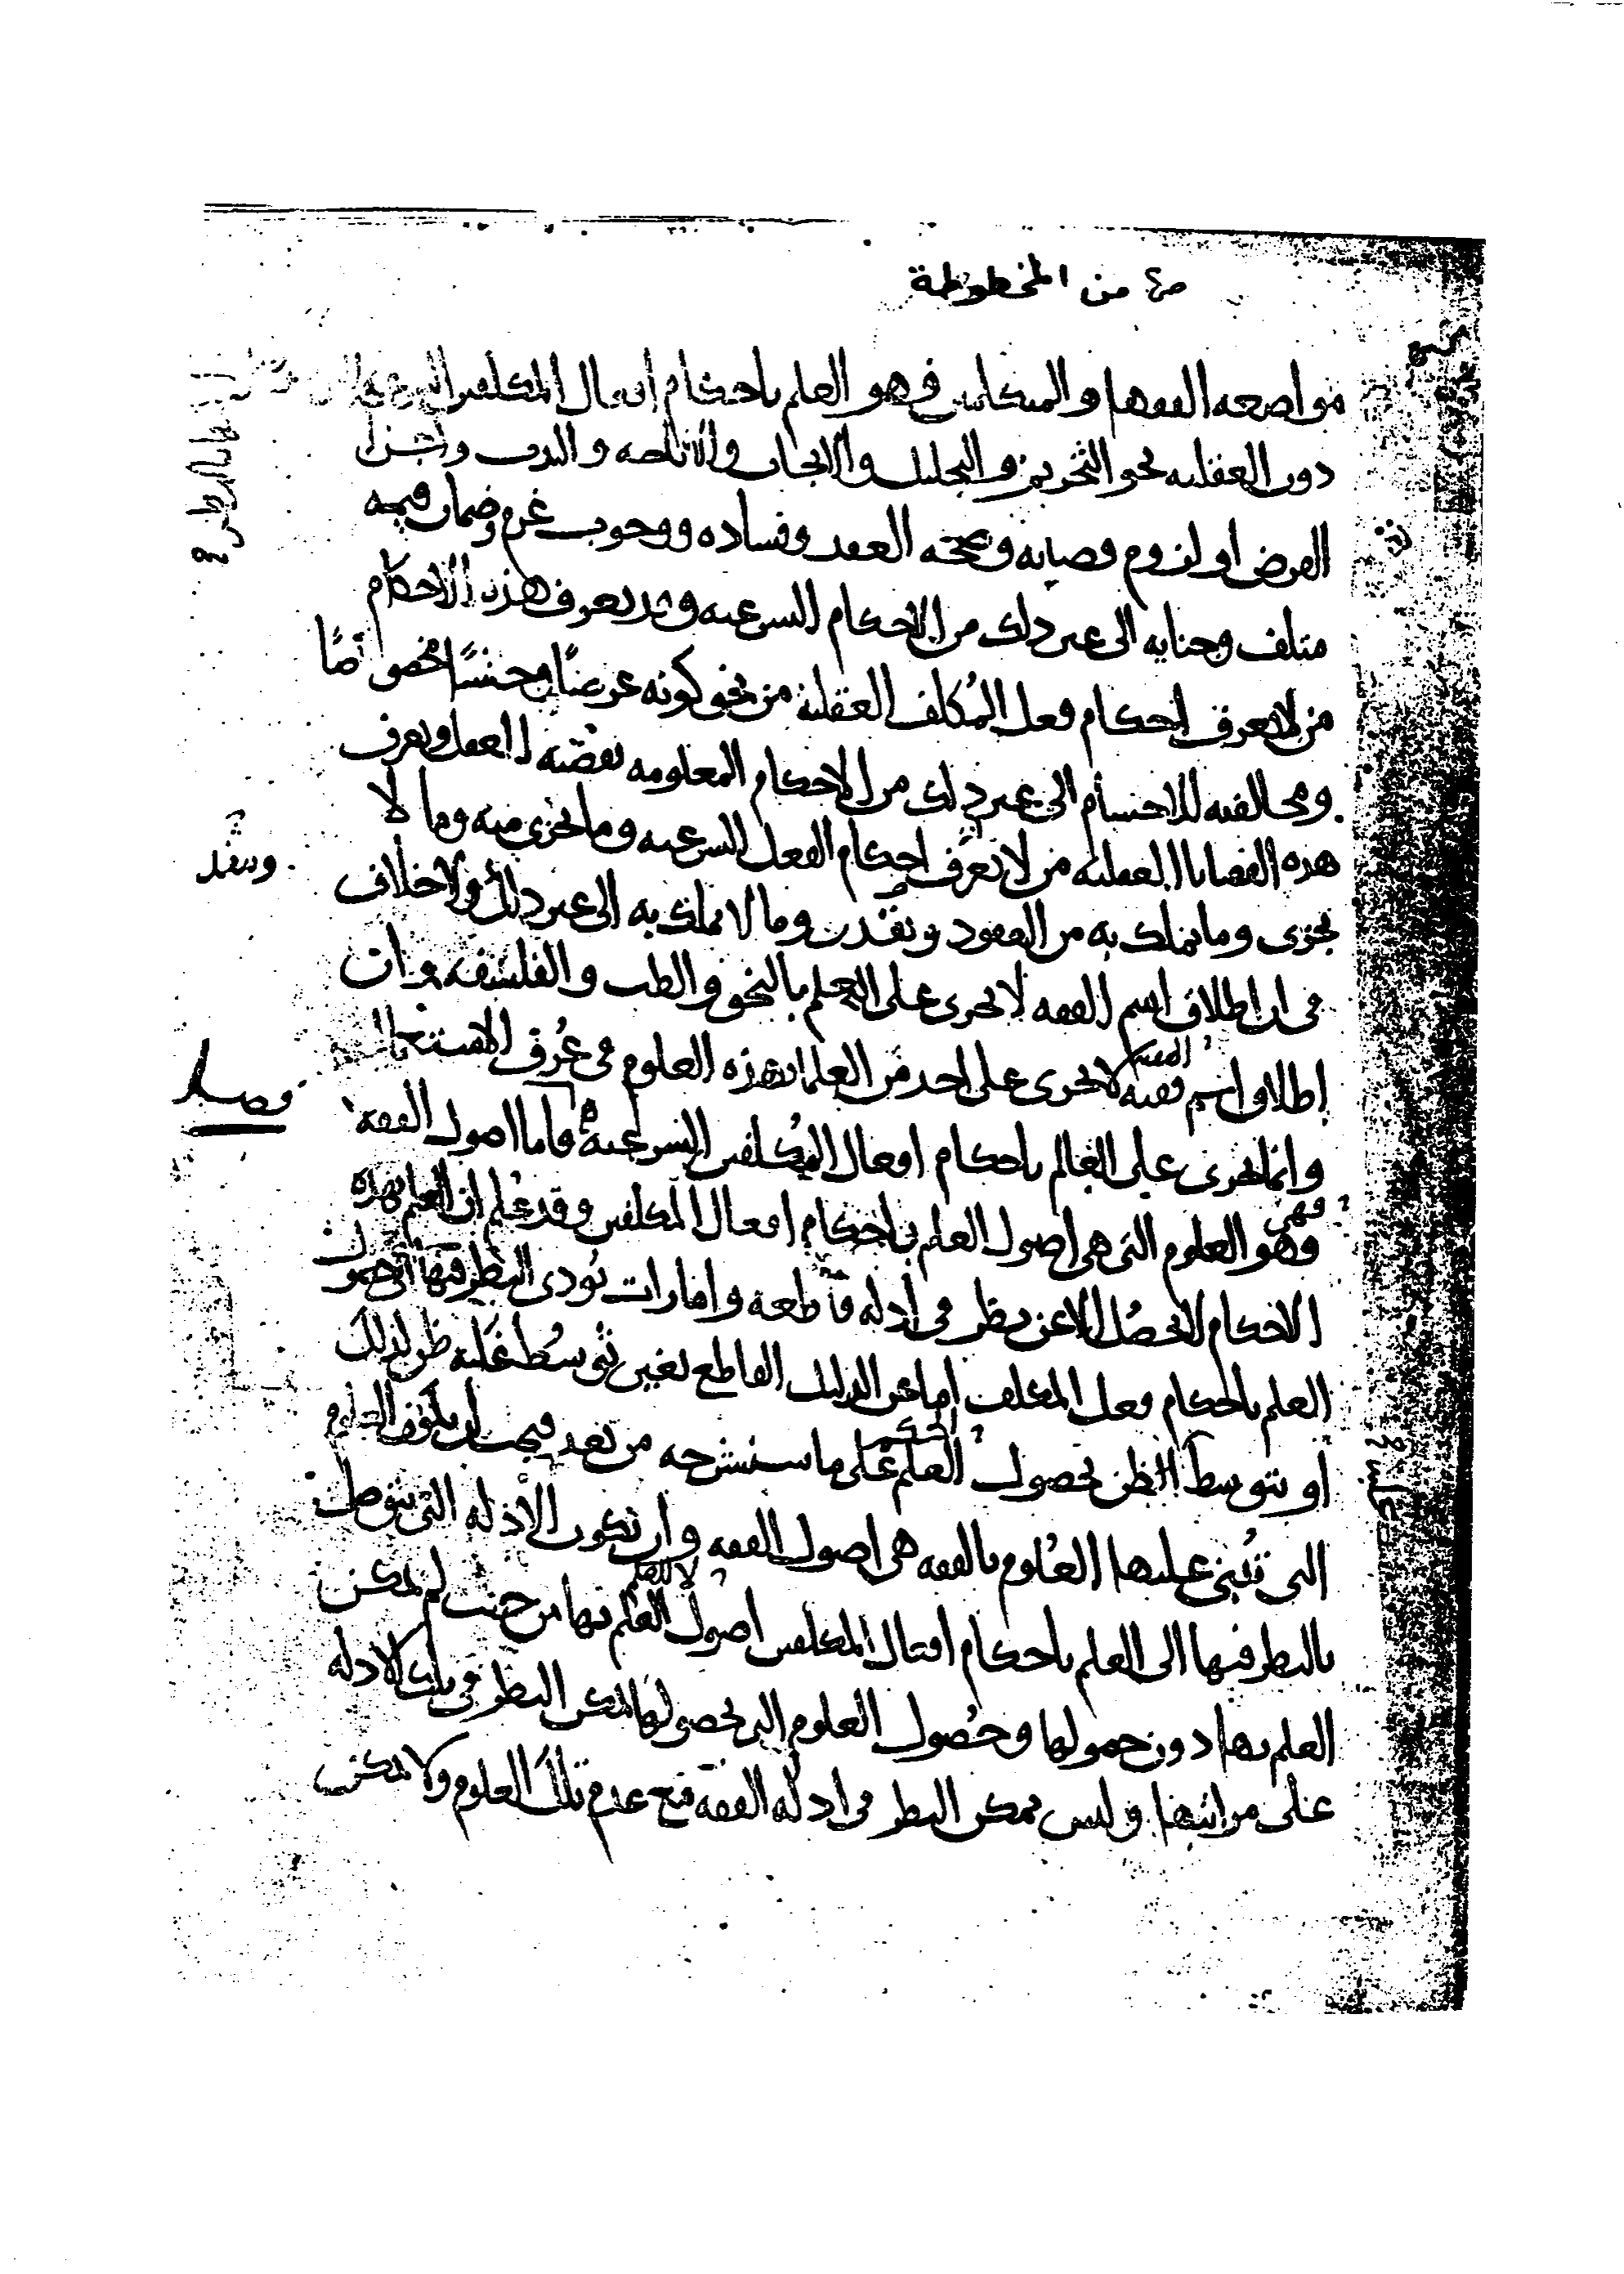 ص٤ من المخطوطة
مواضعه الفقها والمتكلمين فهو العلم باحكام افعال المكلفين الشرعية
دون العقليه نحو التحريم والتحليل والايجاب والاباحه والندب واجزا
الفرض او لزوم قضايه وصحه العقد وفساده ووجوب غرم وضمان قيمه
متلف وجنايه الى غير ذلك من الاحكام الشرعيه وقد يعرف هذه الاحكام
من لا يعرف احكام فعل المكلف العقلية من نحو كونه عرضًا وجنسًا مخصوصًا
ومخالفته للاجسام الى غير ذلك من الاحكام المعلومه بقضيه العقل ويعرف
هذه القضايا العقليه من لا يعرف احكام الفعل الشرعيه وما يجزى منه وما لا
يجزى وما يملك به من العقود وما لا يملك به الى غير ذلك ولا خلاف
وينفذ
فى ان اطلاق اسم الفقه لا يجرى على العلم بالنحو والطب والفلسفه وان
الفقيه
اطلاق اسم فقيه لا يجرى على احد من العلما بهذه العلوم فى عُرف الاستعمال
وانما يجرى على العالم باحكام افعال المكلفين الشرعية واما اصول الفقه
فصل
فهى
وهو العلوم التى هى اصول العلم باحكام افعال المكلفين وقد عُلم ان العلم بهذه
الاحكام لا يحصُل الا عن نظر فى ادله قاطعة وامارات يُودى النظر فيها الى حصول
العلم باحكام فعل المكلف اما عن الدليل القاطع بغير توسُط غلبه ظن لذلك
الحكم
او بتوسط الظن لحصول العلم على ما سنشرحه من بعد فيجب ان يكون العلوم
التى تُبنى عليها العُلوم بالفقه هى اصول الفقه وان تكون الادله التى يتوصل
بالنظر فيها الى العلم باحكام افعال المكلفين اصول العلم بها من حيث لم يمكن
العلم بها دون حصولها وحُصول العلوم التى بحصولها يمكن النظر فى تلك الادله
على مراتبها وليس يمكن النظر فى ادله الفقه مع عدم تلك العلوم ولا يمكن